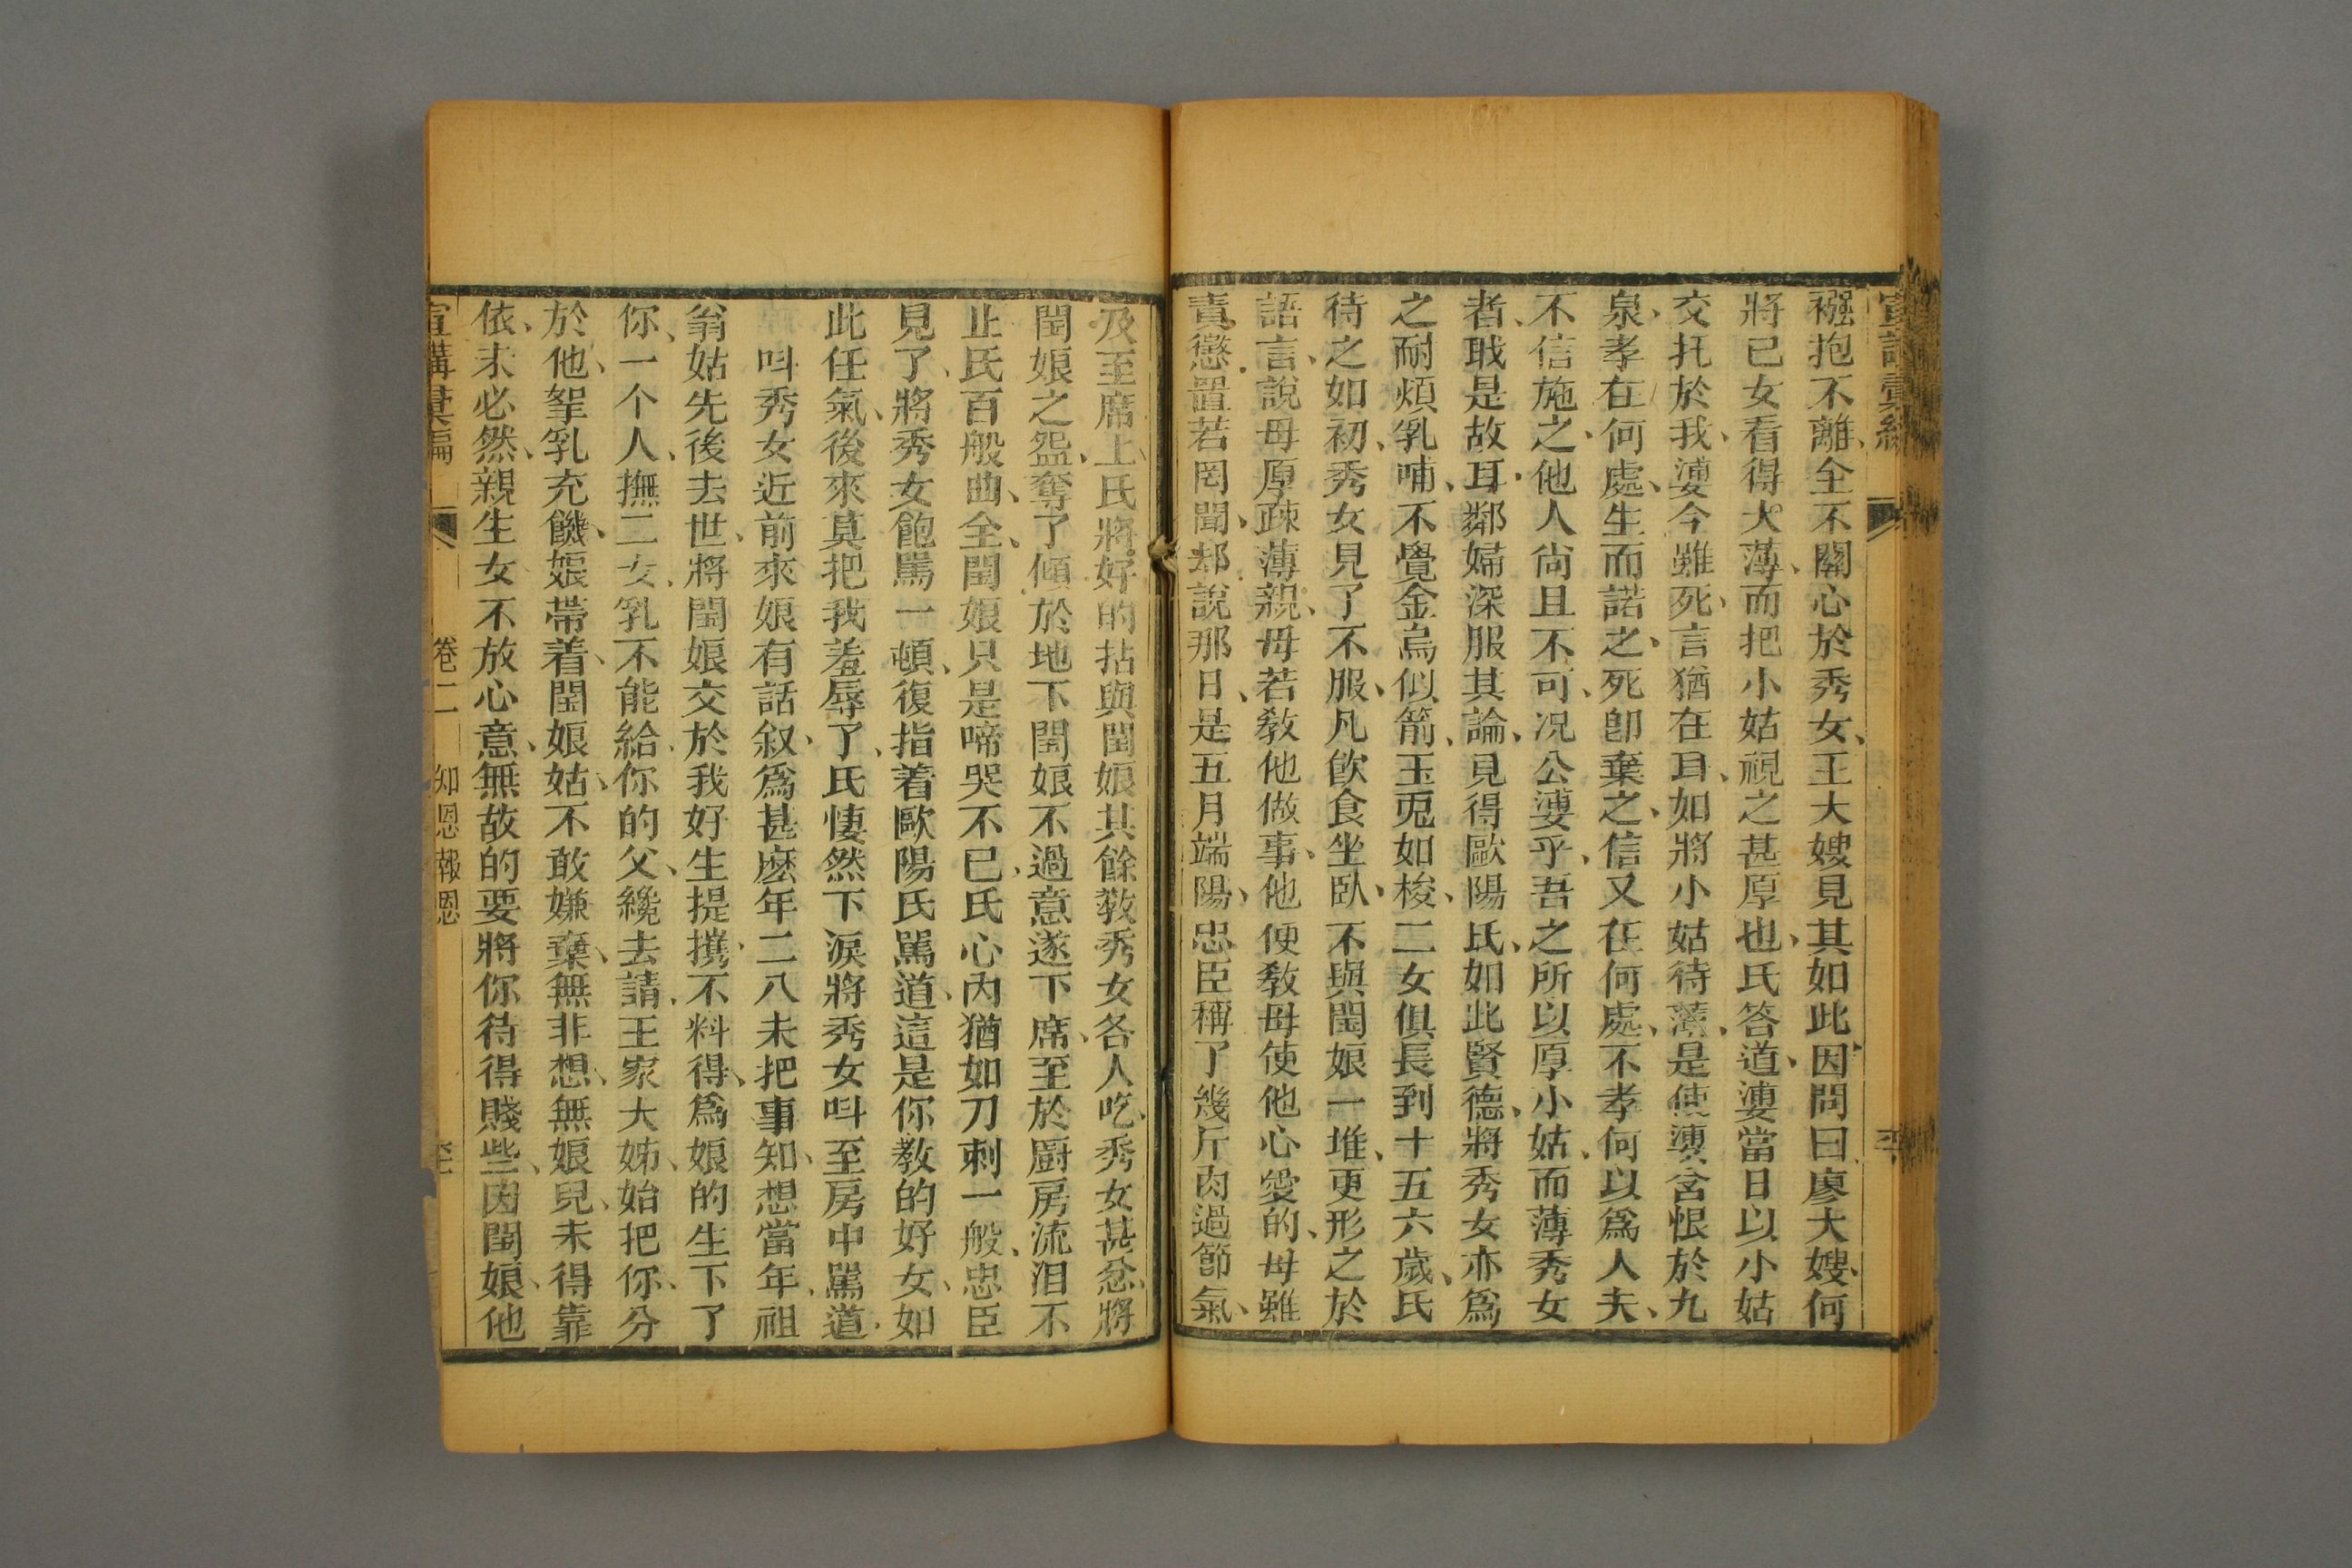 襁抱不離、全不關心於秀女、王大嫂見其如此、因問曰、廖大嫂、何
將已女看得大薄、而把小姑視之甚厚也、氏答道、婆當日以小姑
交托於我、婆今雖死、言猶在耳、如將小姑待薄、是使婆含恨於九
泉、孝在何處、生而諾之、死卽棄之、信又在何處、不孝何以爲人、夫、
不信施之、他人尙且不可、况公婆乎、吾之所以厚小姑、而薄秀女
者、職是故耳、鄰婦深服其論、見得歐陽氏、如此賢德、將秀女亦爲
之耐煩乳哺、不覺金烏似箭、玉兎如梭、二女俱長到十五六歲、氏
待之如初、秀女見了不服、凡飮食坐臥、不與閏娘一堆、更形之於
語言、說母厚疎薄親、母若敎他做事、他便敎母使他心愛的、母雖
責懲置若罔聞、却說那日、是五月端陽、忠臣稱了幾斤肉過節氣、
及至席上、氏將好的拈與閏娘、其餘敎秀女各人吃、秀女甚忿、將
閏娘之𥁕、奪了傾於地下、閏娘不過意、遂下席、至於廚房流泪不
止、氏百般曲全、閏娘只是啼哭不已、氏心內猶如刀刺一般、忠臣
見了、將秀女飽罵一頓、復指着歐陽氏罵道、這是你教的好女、如
此任氣、後來莫把我羞辱了、氏悽然下淚、將秀女呌至房中罵道、
呌秀女近前來娘有話叙、爲甚麽年二八未把事知、想當年、祖
翁姑先後去世、將閏娘交於我好生提携、不料得、爲娘的生下了
你、一个人、撫二女、乳不能給、你的父、纔去請、王家大姊、始把你、分
於他、挐乳充饑、娘帶着、閏娘姑、不敢嫌棄、無非想、無娘兒、未得靠
依、未必然、親生女不放心意、無故的要將你待得賤些、因閏娘、他
宣講彙編　卷二　知恩報恩